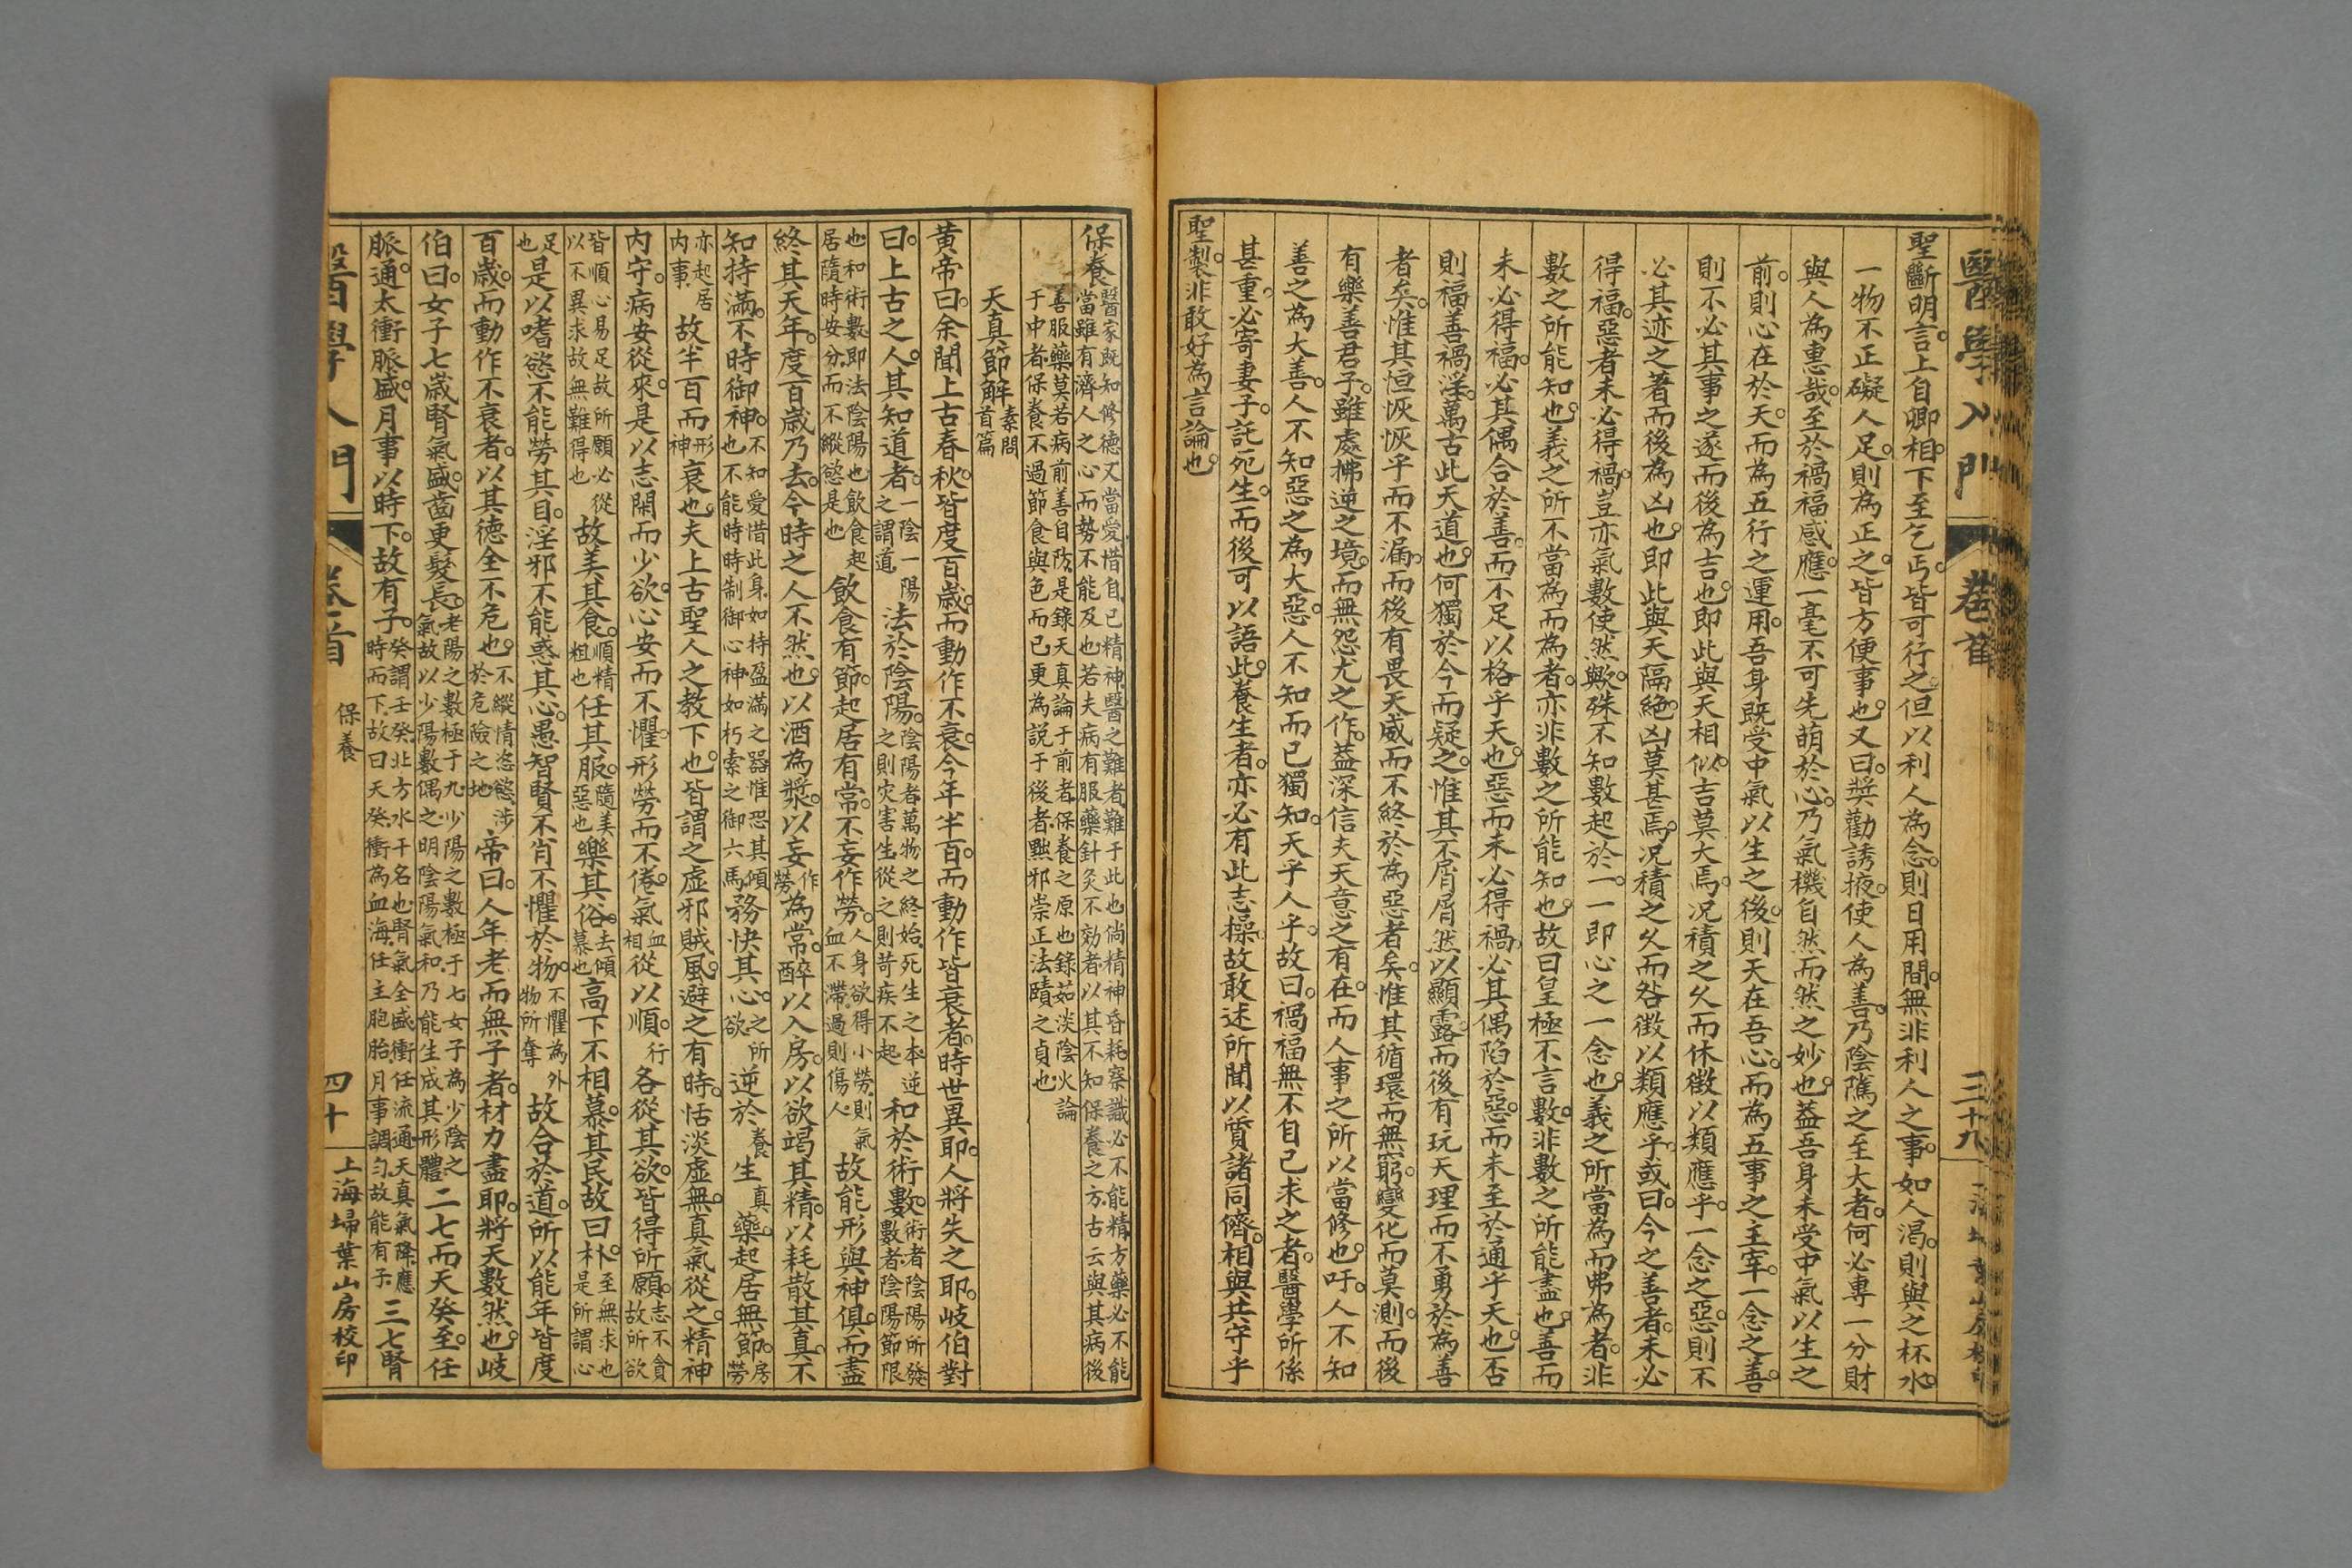 醫學入門 卷首 三十九
聖斷明言。上自卿相。下至乞丐。皆可行之。但以利人為念。則日用間。無非利人之事。如人渴。則與之杯水。
一物不正礙人足。則為正之。皆方便事也。又曰。奬勸誘掖。使人為善。乃陰隲之至大者。何必專一分財
與人為惠哉。至於禍福感應。一毫不可先萌於心。乃氣機自然而然之妙也。蓋吾身未受中氣以生之
前。則心在於天。而為五行之運用。吾身既受中氣以生之後。則天在吾心。而為五事之主宰。一念之善。
則不必其事之遂而後為吉也。即此與天相似。吉莫大焉。况積之久而休徵以類應乎。一念之惡。則不
必其迹之著而後為凶也。即此與天隔絕。凶莫甚焉。况積之久而咎徵以類應乎。或曰。今之善者。未必
得福。惡者未必得禍。豈亦氣數使然歟。殊不知數起於一。一即心之一念也。義之所當為而弗為者。非
數之所能知也。義之所不當為而為者。亦非數之所能知也。故曰皇極不言數。非數之所能盡也。善而
未必得福。必其偶合於善。而不足以格乎天也。惡而未必得禍。必其偶陷於惡。而未至於通乎天也。否
則福善禍淫。萬古此天道也。何獨於今而疑之。惟其不屑屑然以顯露。而後有玩天理而不勇於為善
者矣。惟其恒恢恢乎而不漏。而後有畏天威而不終於為惡者矣。惟其循環而無窮。變化而莫測。而後
有樂善君子。雖處拂逆之境。而無怨尤之作。蓋深信夫天意之有在。而人事之所以當修也。吁。人不知
善之為大善。人不知惡之為大惡。人不知而已獨知。天乎人乎。故曰。禍福無不自己求之者。醫學所係
甚重。必寄妻子。託死生。而後可以語此。養生者。亦必有此志操。故敢述所聞以質諸同儕。相與共守乎
聖製。非敢好為言論也。
保養醫家既知修德。又當愛惜自己精神。醫之難者。難于此也。倘精神昏耗。察識必不能精。方藥必不能
當。雖有濟人之心。而勢不能及也。若夫病有服藥針灸不効者。以其不知保養之方。古云與其病後
善服藥。莫若病前善自防。是錄天真論于前者。保養之原也。錄茹淡陰火論
于中者。保養不過節食與色而已。更為說于後者。黜邪崇正。法賾之貞也。
天真節解素問首篇
黃帝曰。余聞上古春秋。皆度百歲。而動作不衰。今年半百。而動作皆衰者。時世異耶。人將失之耶。岐伯對
曰。上古之人。其知道者。一陰一陽之謂道。法於陰陽。陰陽者。萬物之終始。死生之本。逆之則灾害生。從之則苛疾不起。和於術數。術者。陰陽所發。數者。陰陽節限
也。和術數。即法陰陽也。飲食起居。隨時安分。而不縱慾是也。飲食有節。起居有常。不妄作勞。人身欲得小勞。則氣血不滯。過則傷人。故能形與神俱。而盡
終其天年。度百歲乃去。今時之人不然也。以酒為漿。以妄作勞為常。醉以入房。以欲竭其精。以耗散其真。不
知持滿。不時御神。不知愛惜此身。如持盈滿之器。惟恐其傾也。不能時時制御心神。如朽索之御六馬。務快其心。之所欲逆於養生真藥。起居無節。房勞
亦起居內事。故半百而形神衰也。夫上古聖人之教下也。皆謂之虛邪賊風。避之有時。恬淡虛無。真氣從之。精神
內守。病安從來。是以志閑而少欲。心安而不懼。形勞而不倦。氣血相從以順。行各從其欲。皆得所願。志不貪故所欲
皆順。心易足故所願必從。以不異求故無難得也。故美其食。順精粗也任其服。隨美惡也樂其俗。去傾慕也高下不相慕。其民故曰朴。至無求也。是所謂心
足也。是以嗜慾不能勞其目。淫邪不能惑其心。愚智賢不肖。不懼於物。不懼為外物所奪故合於道。所以能年皆度
百歲。而動作不衰者。以其德全不危也。不縱情恣慾。涉於危險之地。帝曰。人年老而無子者。材力盡耶。將天數然也。岐
伯曰。女子七歲。腎氣盛。齒更髮長。老陽之數極于九。少陽之數極于七。女子為少陰之氣。故以少陽數偶之。明陰陽氣和。乃能生成其形體。二七而天癸至。任
脈通。太衝脈盛。月事以時下。故有子。癸謂壬癸。北方水干名也。腎氣全盛。衝任流通。天真氣降。應時而下。故曰天癸。衝為血海。任主胞胎。月事調勻。故能有子。三七腎
醫學入門 卷首 保養 四十 上海埽葉山房校印